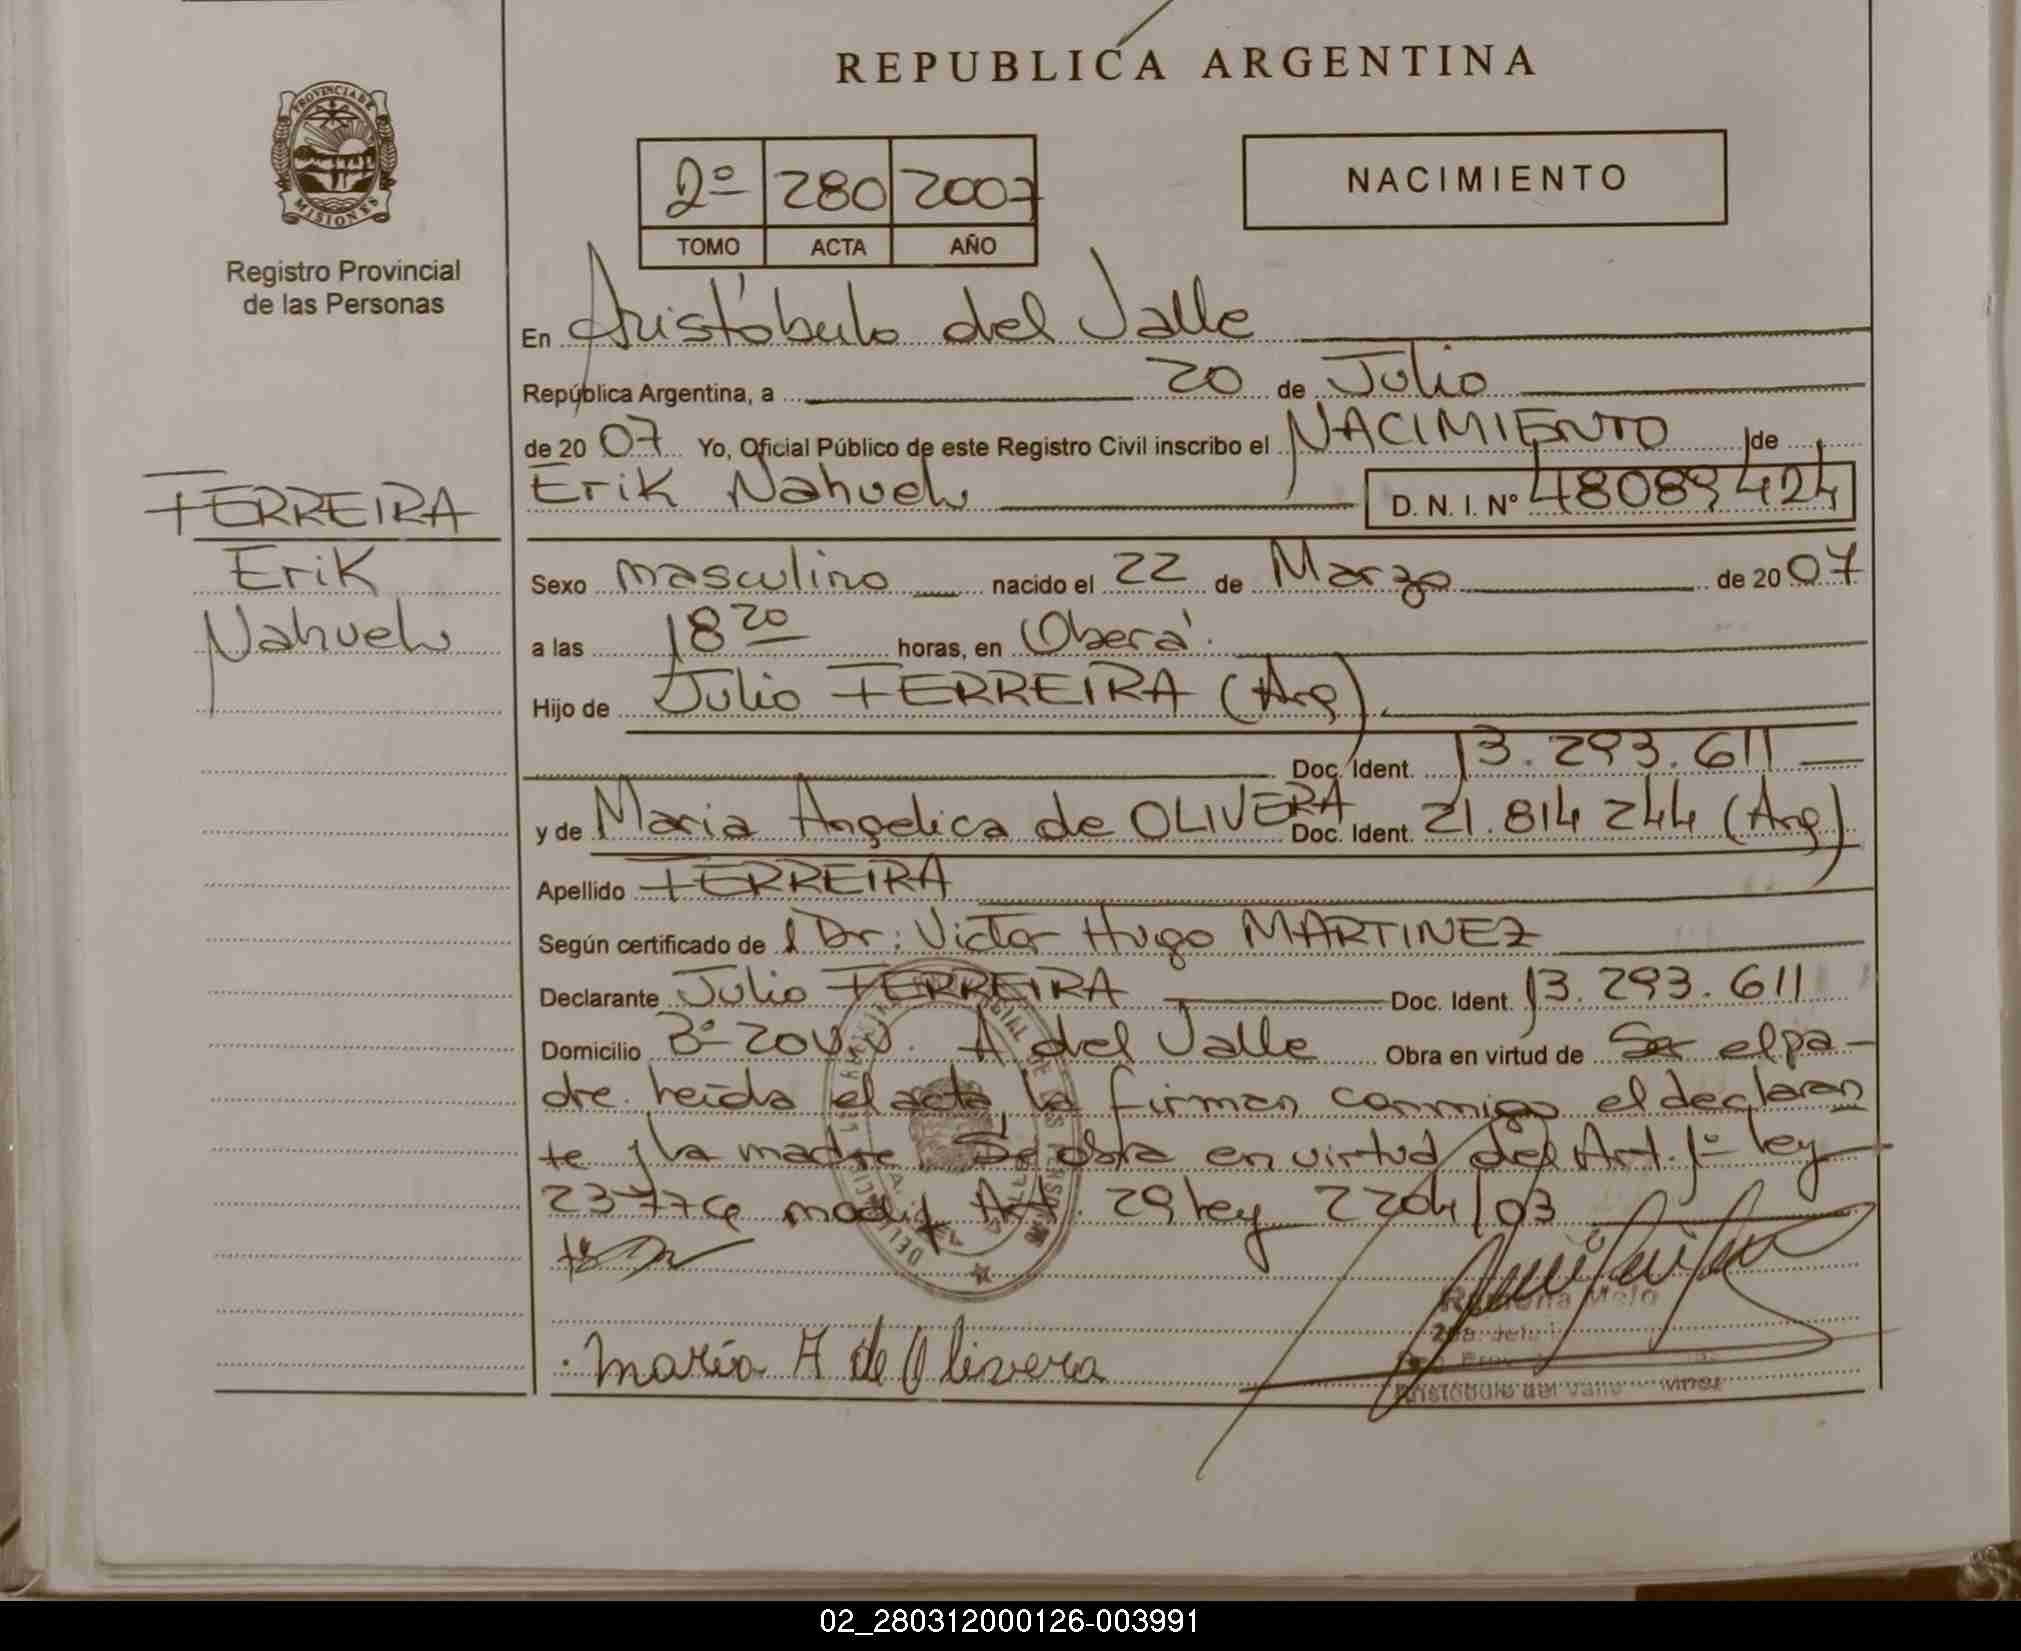 REPUBLICA ARGENTINA
PROVINCIA DE
MISIONES
Registro Provincial
de las Personas
2º 280 2007
TOMO ACTA AÑO
NACIMIENTO
En Aristóbulo del Valle
República Argentina, a 20 de Julio
de 20 07 Yo, Oficial Público de este Registro Civil inscribo el NACIMIENTO de
Erik Nahuel D. N. I. Nº 48089424
FERREIRA
Erik
Nahuel
Sexo masculino nacido el 22 de Marzo de 20 07
a las 18 20 horas, en Oberá.
Hijo de Julio FERREIRA (Arg)
Doc. Ident. 13.293.611
y de Maria Angelica de OLIVERA Doc. Ident. 21.814 244 (Arg)
Apellido FERREIRA
Según certificado de Dr. Victor Hugo MARTINEZ
Declarante Julio FERREIRA Doc. Ident. 13.293.611
Domicilio A del Valle Obra en virtud de Ser el pa-
dre. leida el acta, la firman conmigo el declaran
te y la madre Se obra en virtud del Art. 1º ley
23776 modif Art. 29 ley 2204/03
María A de Olivera
Ramona Melo
Aristóbulo del Valle - Mnes
02_280312000126-003991